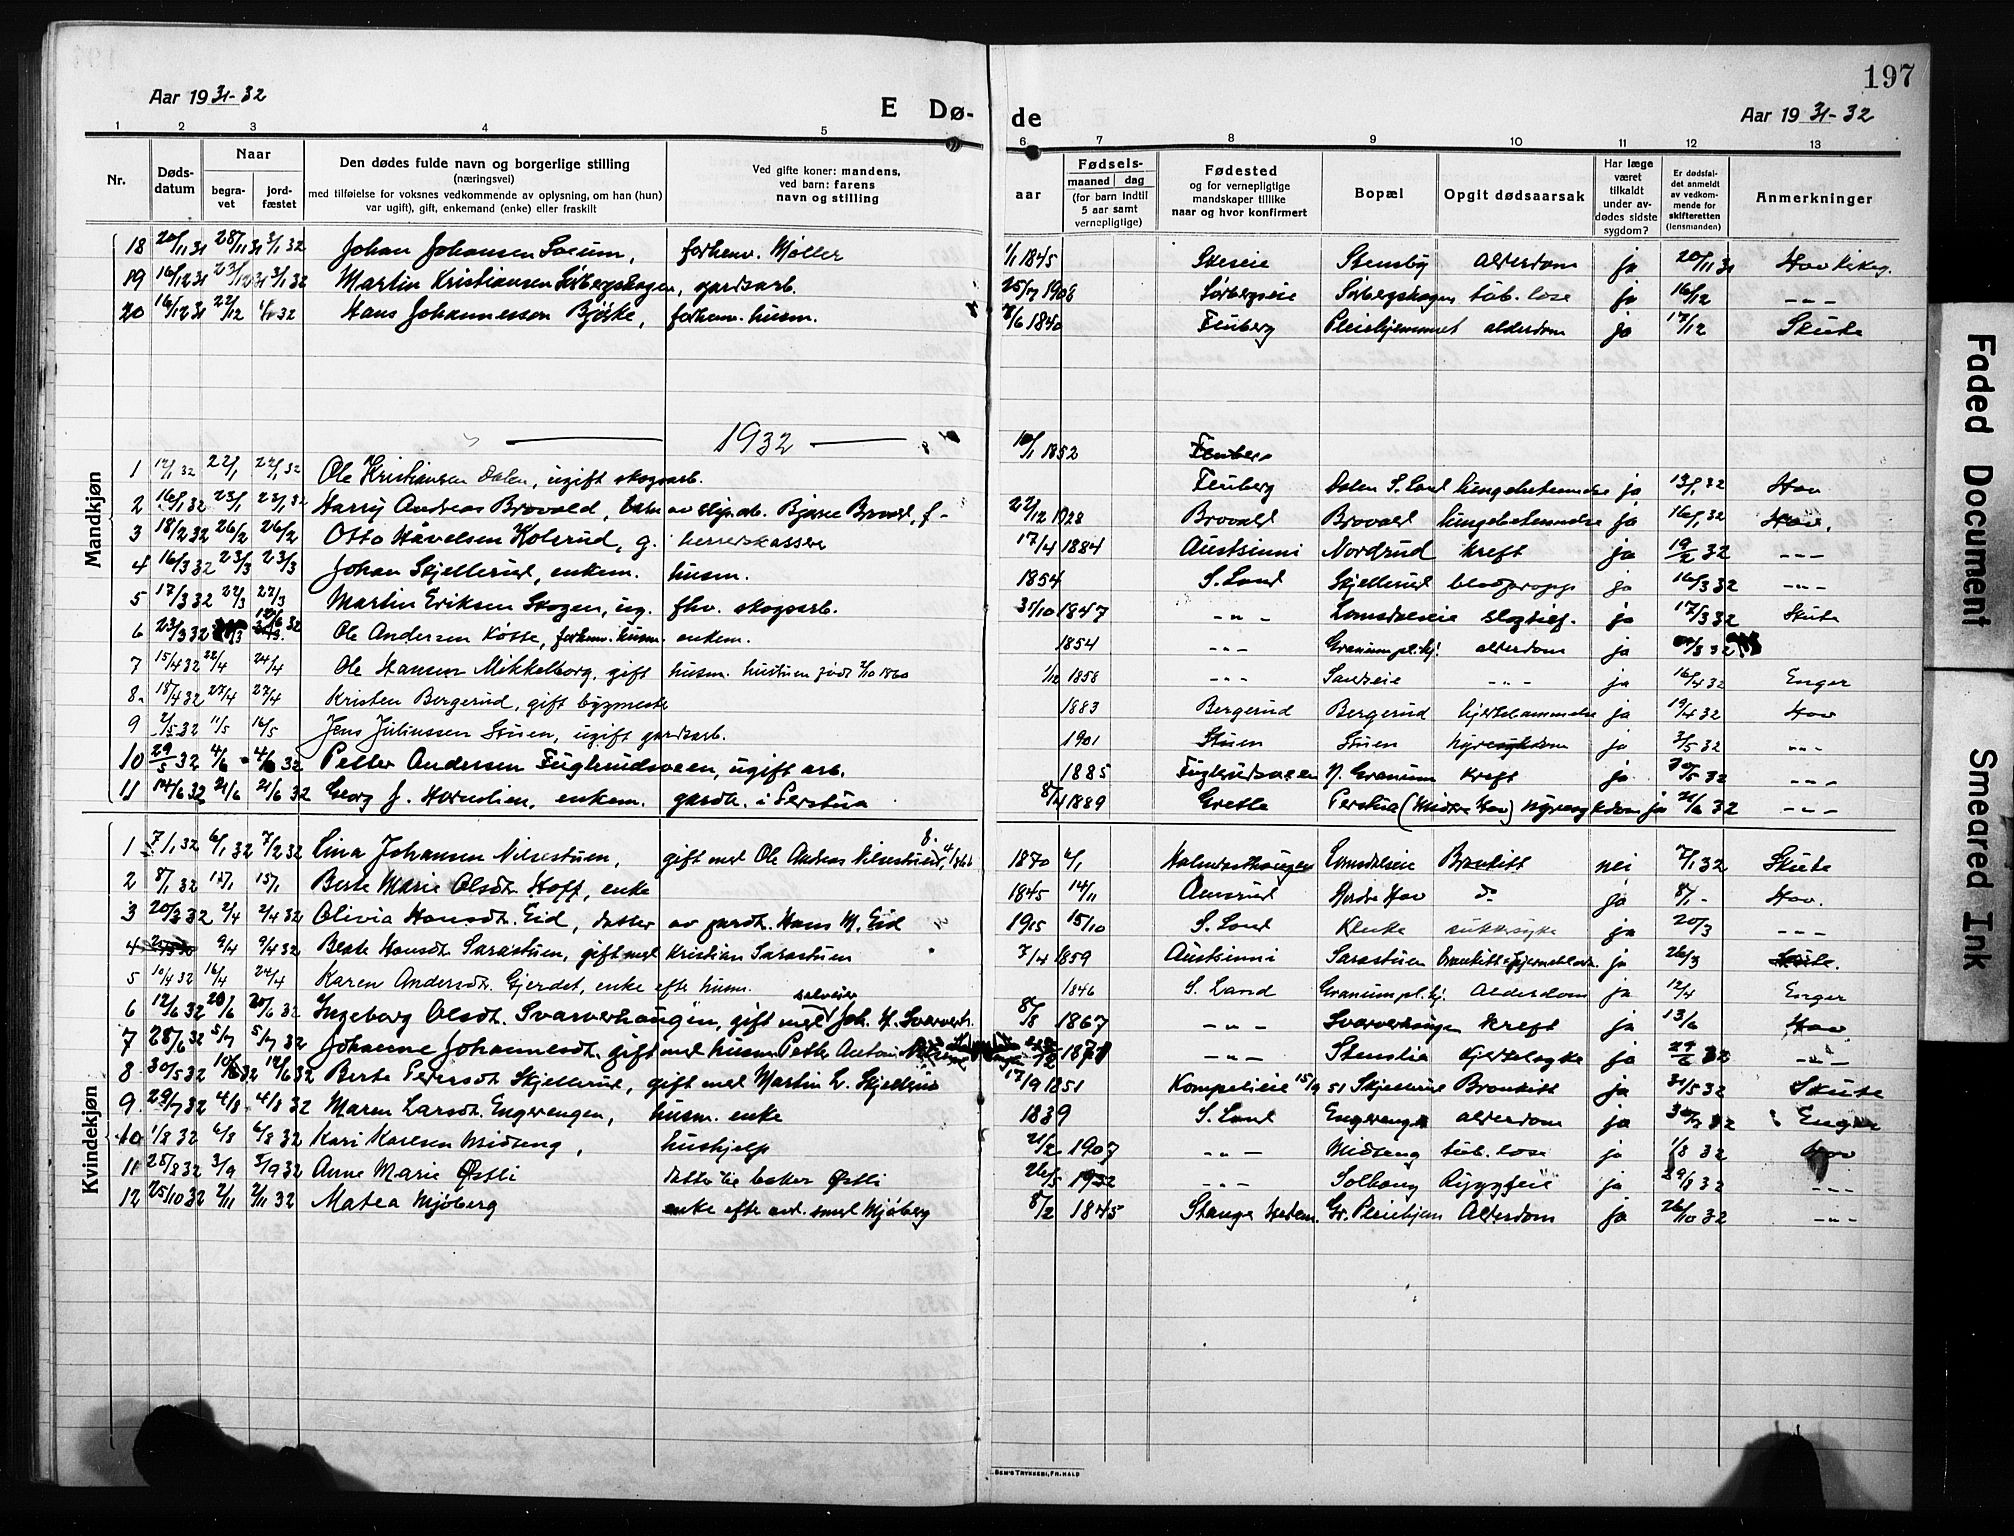 197
Aar 1931-32
E Dø-
de
Aar 1931-32
1 2 3 4 5 6 7 8 9 10 11 12 13
Nr.
Døds-
datum
Naar
begra-
vet
jord-
fæstet
Den dødes fulde navn og borgerlige stilling
(næringsvei)
med tilføielse for voksnes vedkommende av oplysning, om han (hun)
var ugift), gift, enkemand (enke) eller fraskilt
Ved gifte koner: mandens,
ved barn: farens
navn og stilling
aar
Fødsels-
maaned dag
(for barn indtil
5 aar samt
vernepligtige)
Fødested
og for vernepligtige
mandskaper tillike
naar og hvor konfirmert
Bopæl
Opgit dødsaarsak
Har læge
været
tilkaldt
under av-
dødes sidste
sygdom?
Er dødsfal-
det anmeldt
av vedkom-
mende for
skifteretten
(lensmanden)
Anmerkninger
18 20/11 31 28/11 31 3/1 32 Johan Johansen forhenv. Møller 1/1 1845 Stensby Alderdom ja 20/11 31 Hov
19 16/12 31 23/12 31 3/1 32 Martin Kristiansen Sørbergskogen, gardsarb. 25/7 1908 Sørbergseie Sørbergskogen tub. lose ja 16/12 - - -
20 16/12 31 22/12 Hans Johannessen Bjørke, forhenv. husm. 1840 Fluberg Pleiehjemmet alderdom ja 17/12 Skute
1932
Mandkjøn
1 22/1 Ole Kristiansen Dalen, ugift skogsarb. 1852 Fluberg Dalen S. Land lungebetennelse ja 13/1 32 Hov
2 16/1 32 23/1 23/1 32 Harry Andreas Brovold, av slip.arb. Bjarne 22/12 1928 Brovold Brovold lungebetennelse ja 16/1 32 Hov.
3 18/2 32 26/2 26/2 Otto Håvelsen Kolsrud, g. herredskasserer 17/4 1884 Austsinni Nordrud kreft ja 19/2 32 - - -
4 16/3 32 23/3 23/3 Johan Skjellerud, enkem. husm. 1854 S. Land Skjellerud blodpropp ja 16/3 32 - - -
5 17/3 32 22/3 22/3 Martin Eriksen Skogen, ug. fhv. skogsarb. 31/10 1847 - " - Lomsdalseie ja 17/3 32 Skute
6 23/3 32 Ole Andersen forhenv. husm. enkem. 1854 - " - Granum pl.hj. alderdom ja
7 15/4 32 22/4 24/4 Ole Hansen Mikkelborg, gift husm. hustruen født 2/10 1860 1/12 1858 - " - - " - ja 16/4 32 Enger
8 18/4 32 27/4 27/4 Kristen Bergerud, gift bygmester 1883 Bergerud Bergerud hjertelammelse ja 19/4 32 Hov
9 2/5 32 11/5 16/5 Jens Juliussen Stuen, ugift gardsarb. 1901 Stuen Stuen nyresykdom ja 3/5 32 - " -
10 29/5 32 4/6 4/6 32 Petter Andersen Fuglerudsveen, ugift arb. 1885 Fuglerudsveen N. Granum kreft ja 30/5 32 - " -
11 14/6 32 21/6 21/6 32 Georg J. enkem. gardb. i Perstua 8/4 1889 Grette Perstua (Midtre Hov) nyresykdom ja 21/6 32 - " -
Kvindekjøn
1 7/1 32 7/2 32 Lina Johansen Nilsestuen, gift med Ole Andreas 1870 Lomsdalseie Bronkitt nei 7/1 32 Skute
2 8/1 32 15/1 15/1 Berte Marie Olsdt. Hoff, enke 1845 14/11 Amsrud Nordre Hov do ja 8/1 - Hov.
3 20/3 32 2/4 2/4 32 Olivia Hansdt. Eid, datter av gardb. Hans M. Eid 1915 15/10 S. Land sukkersyke ja 20/3 - - -
4 9/4 9/4 32 Beate Hansdt. Sarastuen, gift med Kristian Sarastuen 7/4 1859 Austsinni Sarastuen ja 26/3 Skute.
5 10/4 32 16/4 24/4 Karen Andersdt. Gjerdet, enke efter husm. 1846 S. Land Granum pl.hj. Alderdom ja 12/4 Enger
6 12/6 32 20/6 20/6 32 Ingeborg Olsdt. Svarverhaugen, gift med selveier Joh. H. Svarverh. 8/8 1867 - " - Svarverhaugen kreft ja 13/6 Hov
7 28/6 32 5/7 5/7 32 Johanne Johannesdt. gift med husm. Petter Anton 1871 - " - Stenslia hjertelyke ja 29/6 32 - " -
8 30/5 32 10/6 32 12/6 32 Berte Pedersdt. Skjellerud, gift med Martin L. Skjellerud 17/9 1851 15/9 51 Skjellerud Bronkitt ja 31/5 32 Skute
9 29/7 32 4/8 4/8 32 Maren Larsdt. Engerengen, husm. enke 1839 S. Land Engerengen alderdom ja Enger
10 1/8 32 6/8 6/8 32 Kari Karlsen Midteng, hushjelp 21/2 1907 - " - Midteng tub. lose ja 1/8 32 Hov
11 28/8 32 3/9 3/9 32 Anne Marie Østli datter til baker Østli 26/5 1932 - " - Solhaug Ryggfeil ja 29/8 32 - - -
12 25/10 32 2/11 2/11 32 Matea Mjøberg enke efter smed Mjøberg 8/2 1845 Stange Hedm. Gr. Pleiehjem Alderdom ja 26/10 32 - " -
SEM'S TRYKKERI, FR.HALD
Faded Document
Smeared Ink